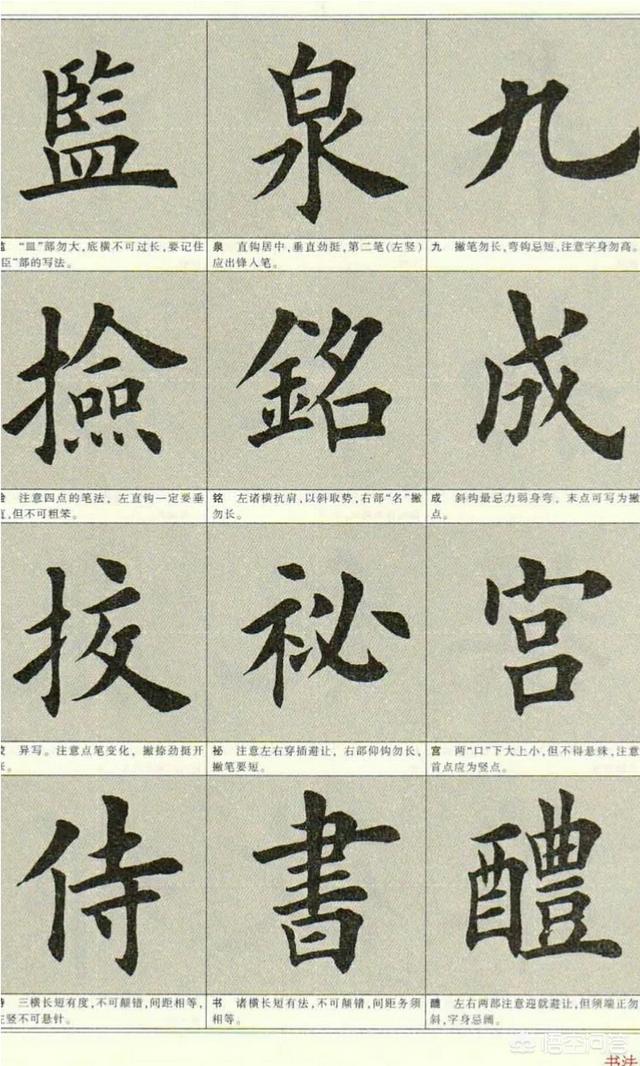 九
九 撇笔勿长,弯钩忌短,注意字身勿高。
成
成 斜钩最忌力弱身弯,末点可写为撇
点。
宫
宫 两“口”下大上小,但不得悬殊,注意
首点应为竖点。
醴
醴 左右两部注意迎就避让,但须端正勿
斜,字身忌阔。
泉
泉 直钩居中,垂直劲挺,第二笔(左竖)
应出锋入笔。
銘
铭 左诸横抗肩,以斜取势,右部“名”撇
勿长。
祕
祕 注意左右穿插避让,右部仰钩勿长,
撇笔要短。
書
书 诸横长短有法,不可颠错,间距务须
相等。
監
“皿”部勿大,底横不可过长,要记住
臣”部的写法。
撿
注意四点的笔法,左直钩一定要垂
直,但不可粗笨。
挍
异写。注意点笔变化,撇捺劲挺开
侍
三横长短有度,不可颠错,间距相等,
竖不可悬针。
悟空问答
书法